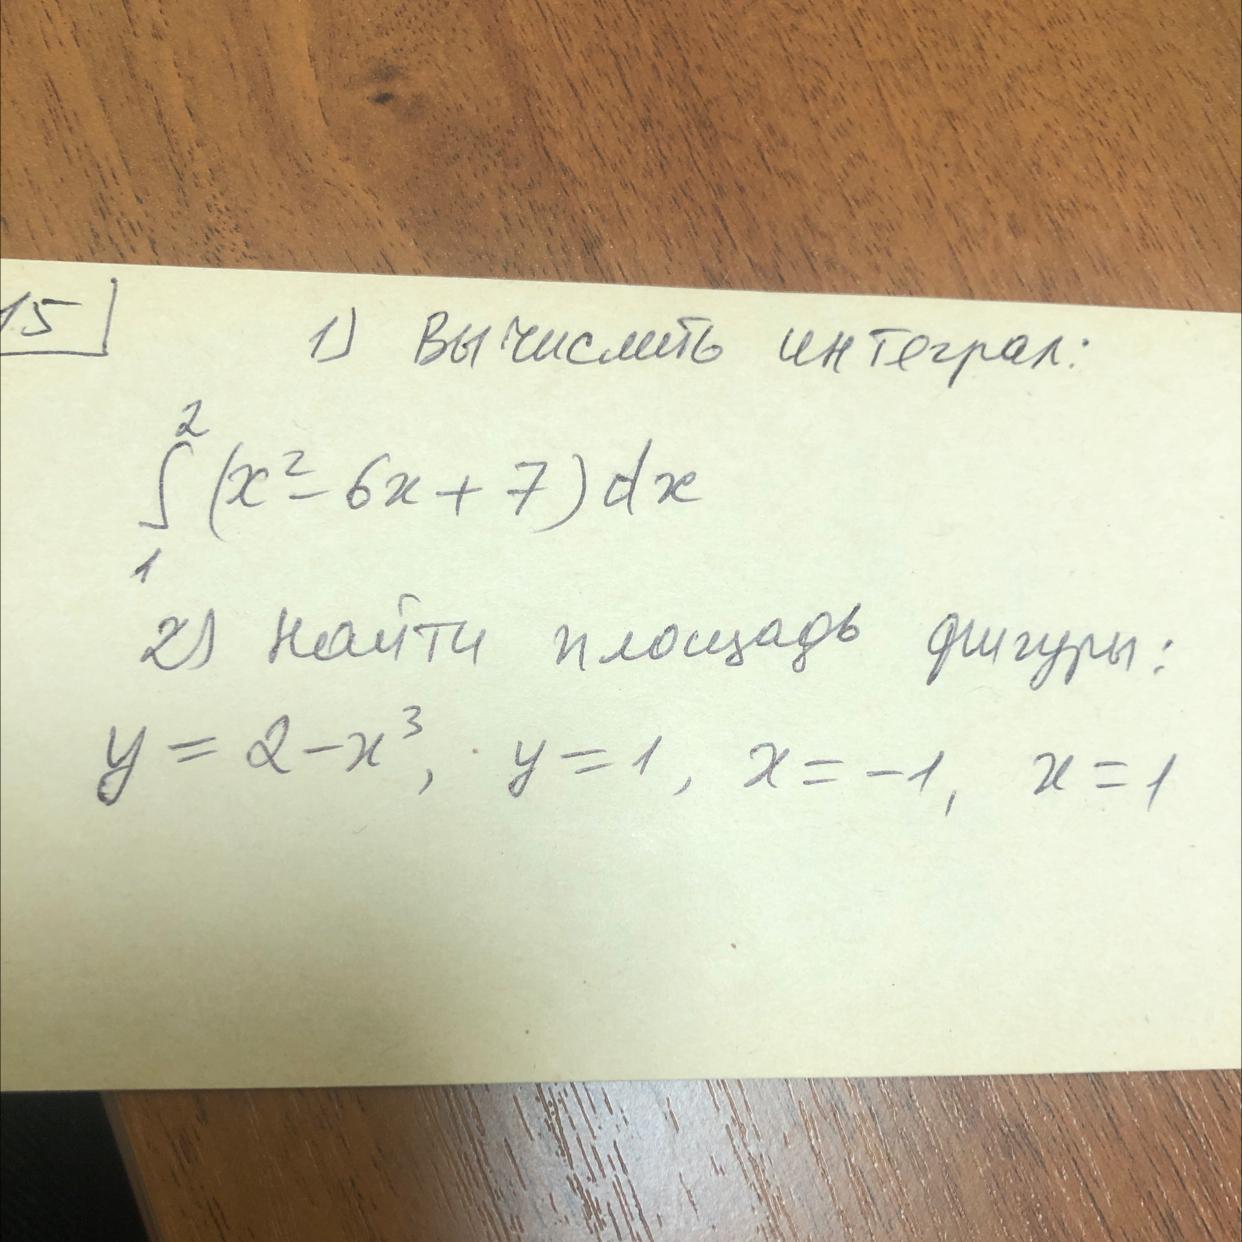 15
1) Вычислить интеграл:
∫₁² (x² - 6x + 7) dx
2) Найти площадь фигуры:
y = 2 - x³, y = 1, x = -1, x = 1